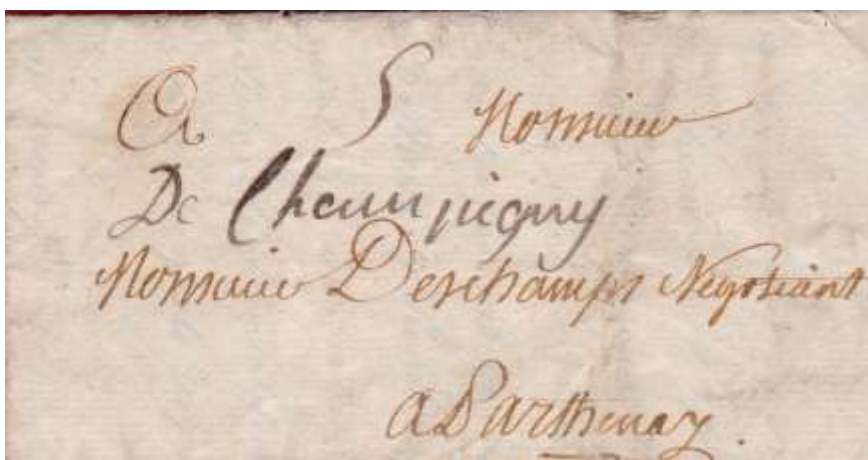 A 5 Monsieur
De Champigny
Monsieur Deschamps Negotiant
a Parthenay.